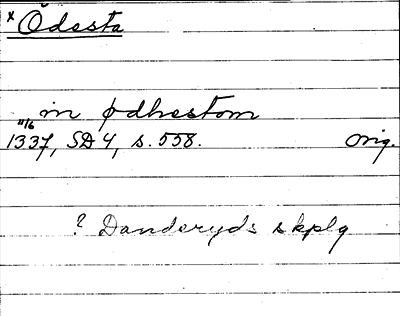 x Ödesta
in ødhestom
11/6
1337, SD 4, s. 558. orig.
? Danderyds skplg